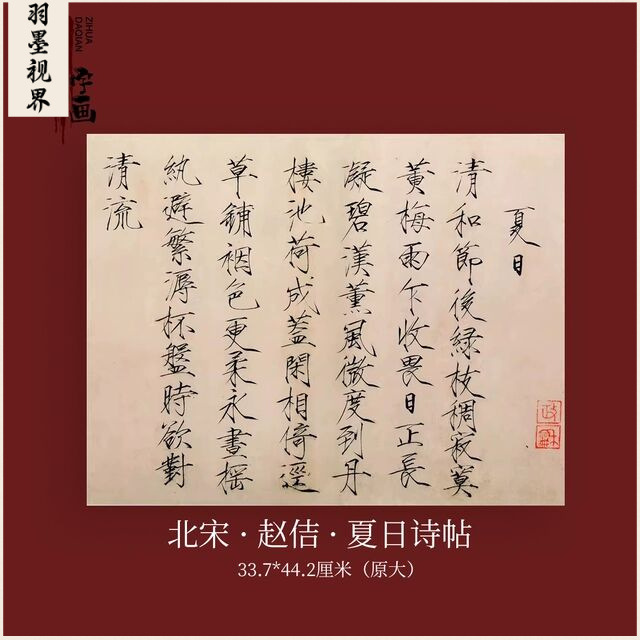 羽墨视界
ZIHUA
DAQIAN
字画
夏日
清和節後綠枝稠寂寞
黃梅雨乍收畏日正長
凝碧漢薰風微度到丹
樓池荷成蓋閑相倚逕
草鋪裀色更柔永晝搖
紈避繁溽杯盤時欲對
清流
政
龢
北宋·赵佶·夏日诗帖
33.7*44.2厘米（原大）